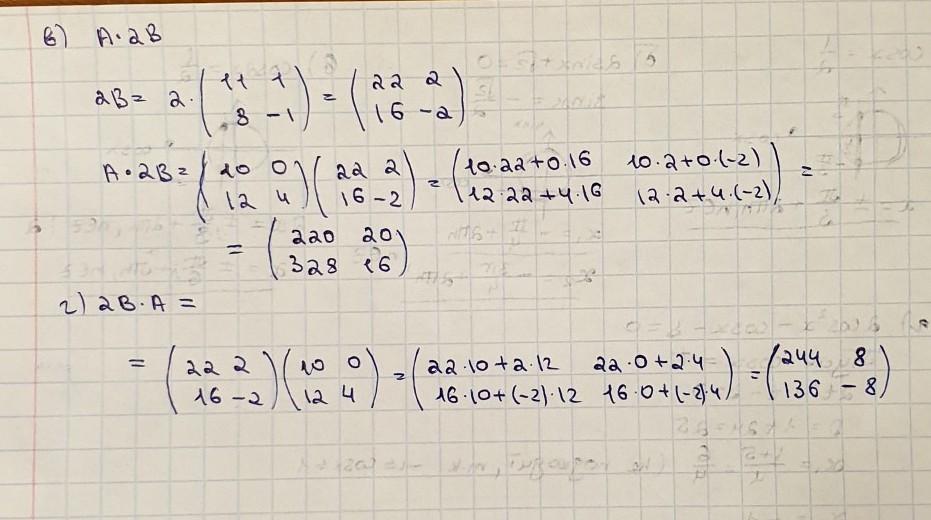 в) A·2B
2B = 2·(11 1; 8 -1) = (22 2; 16 -2)
A·2B = (10 0; 12 4)(22 2; 16 -2) = (10·22+0·16 10·2+0·(-2); 12·22+4·16 12·2+4·(-2)) =
= (220 20; 328 16)
г) 2B·A =
= (22 2; 16 -2)(10 0; 12 4) = (22·10+2·12 22·0+2·4; 16·10+(-2)·12 16·0+(-2)·4) = (244 8; 136 -8)